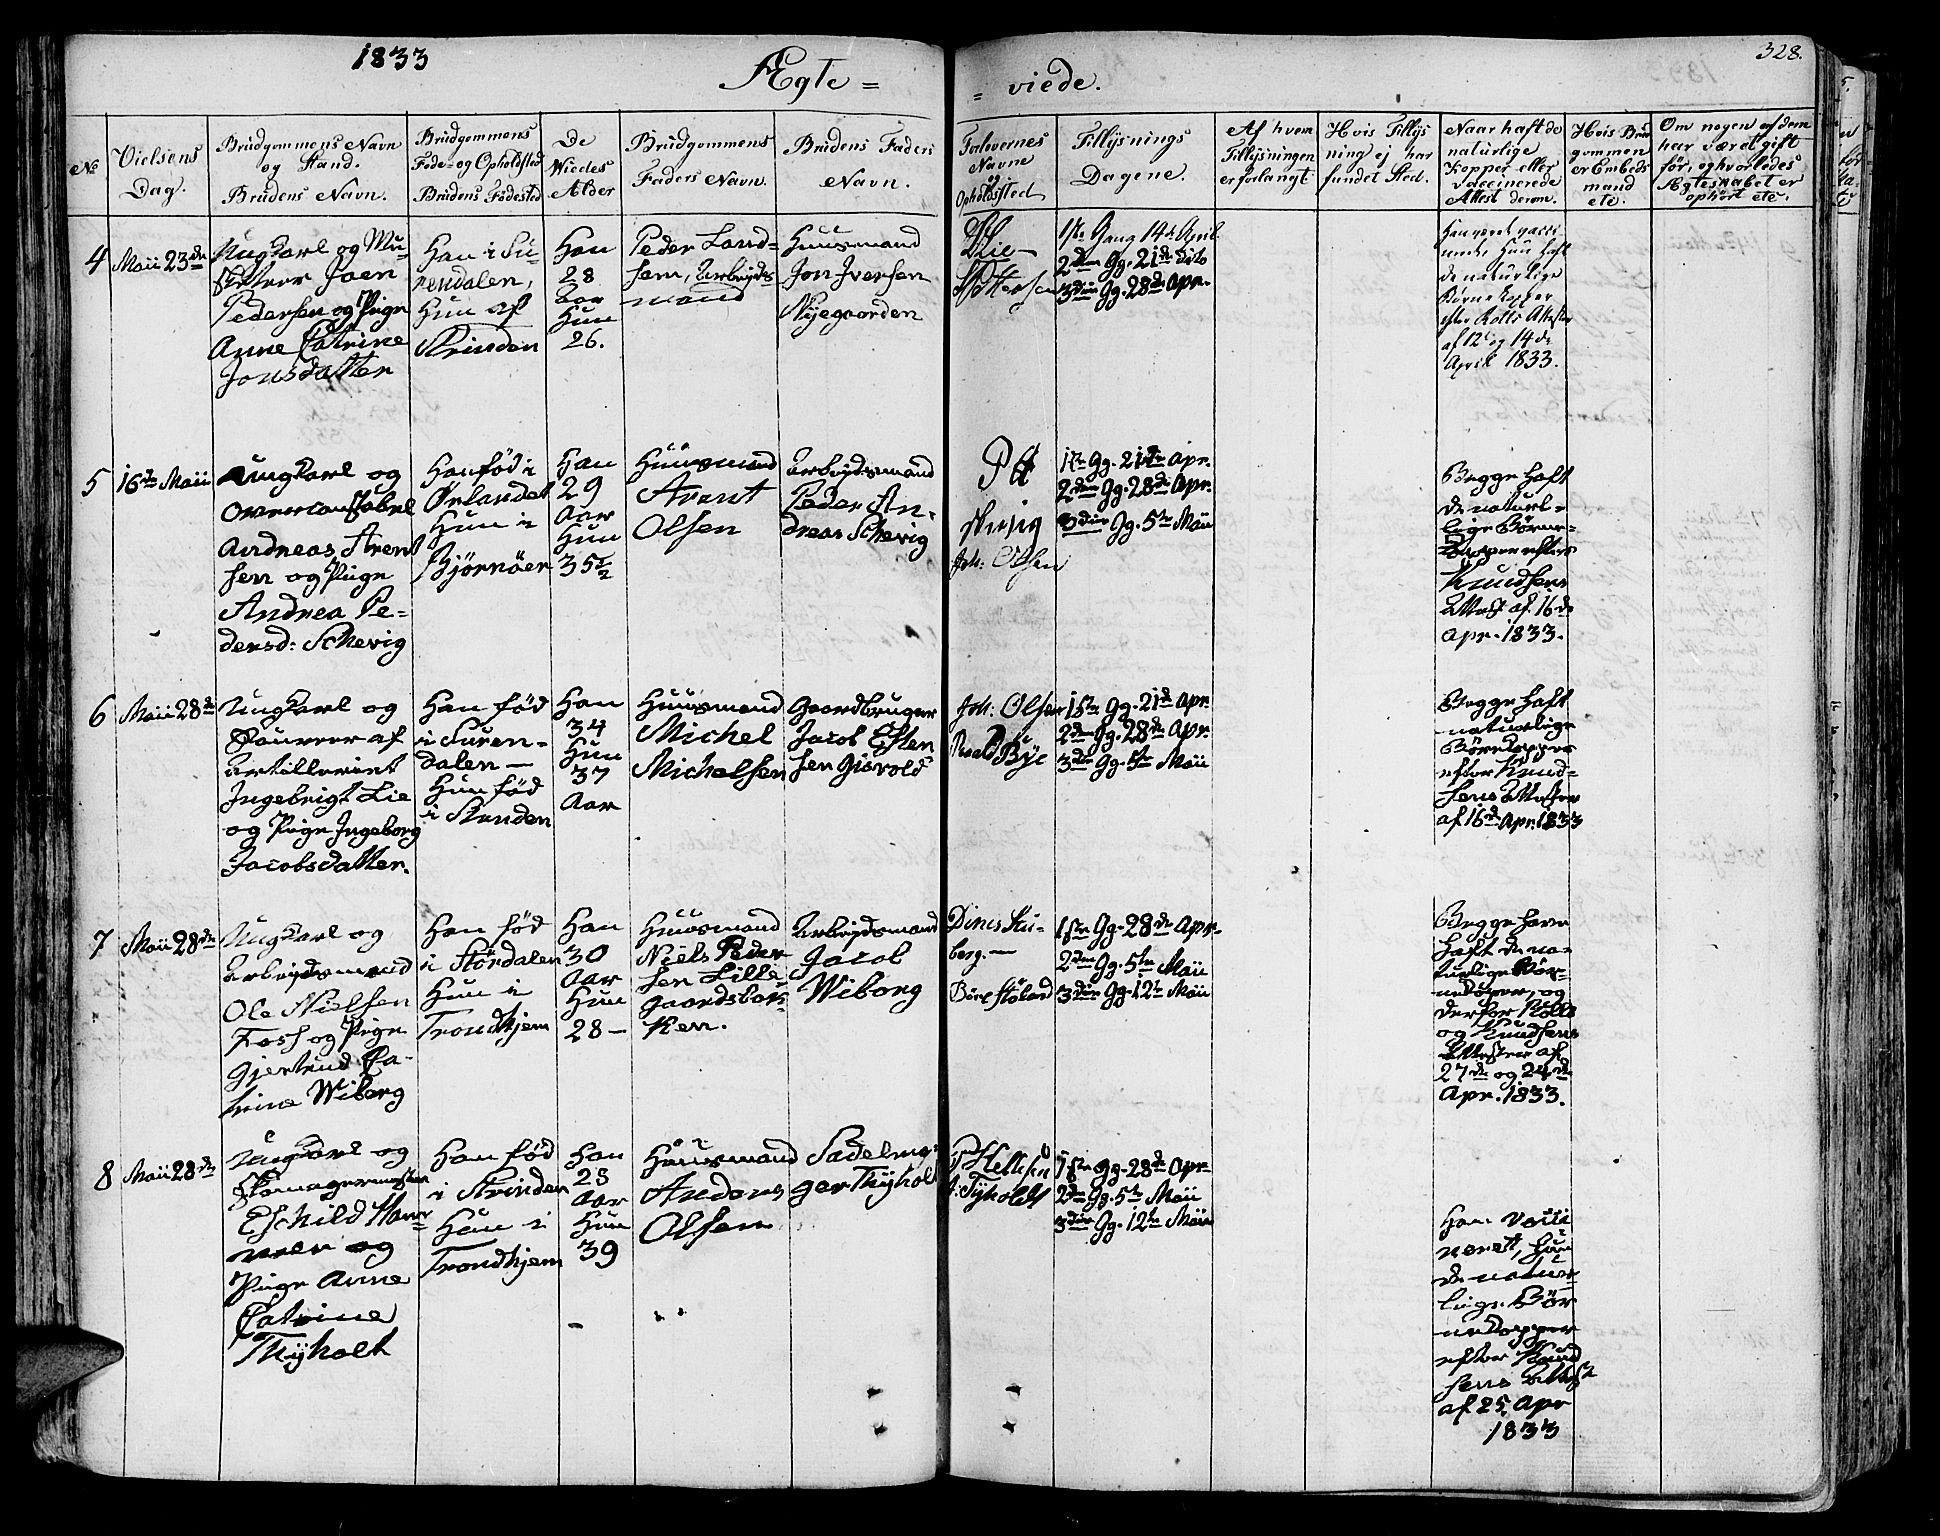 1833
Ægte =
= viede.
328.
No
Vielsens
Dag.
Brudgommens Navn
og Stand.
Brudens Navn.
Brudgommens
Føde- og Opholdsted
Brudens Fødested
De
Viedes
Alder
Brudgommens
Faders Navn.
Brudens Faders
Navn.
Forlovernes
Navne
og
Opholdssted
Tillysnings
Dagene.
Af hvem
Tillysningen
er forlangt.
Hvis Tillys
ning ej har
fundet Sted.
Naar haft de
naturlige
Kopper eller
vaccinerede
Attest derom.
Hvis Brud
gommen
er Embeds
mand
etc.
Om nogen af dem
har været gift
før, og hvorledes
Ægteskabet er
ophørt etc.
4
Maii 23de
Ungkarl og Mu-
Joen
Pedersen og Pige
Anne Catrine
Jonsdatter
Han i Su-
rendalen,
Hun af
Strinden
Han
28
Aar
Hun
26.
Peder Land-
sem, Arbeids
mand
Huusmand
Jon Iversen
Nyegaarden
Lie
Pettersen
1ste Gang 14de April
2den Gg. 21de dito
3die Gg. 28de Apr.
Han været vacci
neret, Hun haft
de naturlige
Børnekopper
efter Rolls Attester
af 12te og 14de
April 1833.
5
16de Maii
Ungkarl og
Overconstabel
Andreas Arent
sen og Pige
Andrea Pe-
dersd: Schevig
Han fød i
Ørlandet
Hun i
Bjørnöer
Han
29
Aar
Hun
35½
Huusmand
Arent
Olsen
Arbeidsmand
Peder An-
dreas Schevig
Joh: Olsen
1ste Gg. 21de Apr.
2den Gg. 28de Apr.
3die Gg. 5te Maii
Begge haft
de naturl-
lige Börne-
kopper efter
Knudsens
Attest af 16de
Apr. 1833.
6
Maii 28de
Ungkarl og
af
Artilleriet
Ingebrigt Lie
og Pige Ingeborg
Jacobsdatter.
Han fød
i Suren-
dalen —
Hun fød
i Strinden
Han
34
Hun
37
Aar
Huusmand
Michel
Michelsen
Gaardbruger
Jacob Esten
sen Gisvold
Joh: Olsen
Bye
1ste Gg. 21de Apr.
2den Gg. 28de Apr.
3die Gg. 5te Maii
Begge haft
naturlige
Börnekopper
efter Knud-
sens Attester
af 16de Apr. 1833
7
Maii 28de
Ungkarl og
Arbeidsmand
Ole Nielsen
Foss og Pige
Gjertrud Ca-
trine Wiborg
Han fød
i Stördalen
Hun i
Trondhjem
Han
30
Aar
Hun
28 —
Huusmand
Niels Peder
sen Lille
gaardsbak
ken.
Arbeidsmand
Jacob
Wiborg
Dines Stu-
berg. —
1ste Gg. 28de Apr.
2den Gg. 5te Maii
3die Gg. 12te Maii
Begge have
haft de na-
turlige Bör-
nekopper, og
derfor Rolls
og Knudsens
Attester af
27de og 24de
Apr. 1833.
8
Maii 28de
Ungkarl og
Skomagermester
Eschild Ham-
mer og
Pige Anne
Catrine
Thyholt
Han fød
i Strinden
Hun i
Trondhjem
Han
25
Aar
Hun
39
Huusmand
Anders
Olsen
Sadelma-
ger Thyholt
Thyholdt
1ste Gg. 28de Apr.
2den Gg. 5te Maii
3die Gg. 12te Maii
Han vacci
neret, Hun
de natur-
lige Bör
nekopper
efter Knud
sens Attest
af 25. Apr
1833